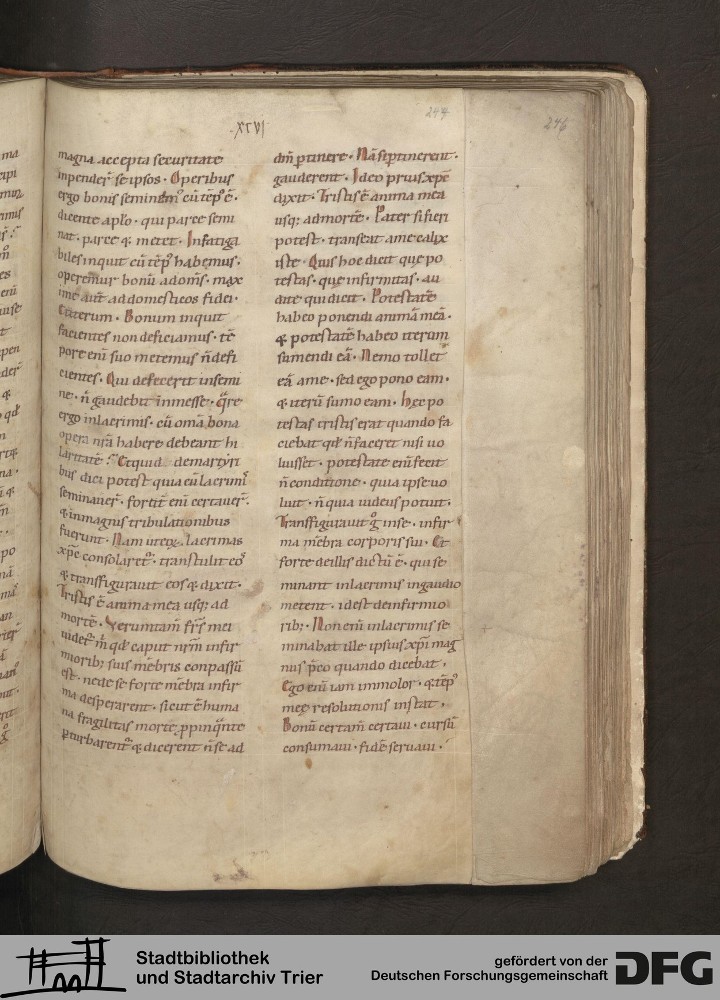 .XCVI.
244
246
magna accepta securitate
inpenderˉ se ipsos. Operibus
ergo bonis seminem' cū tēp' ē.
dicente aplo. qui parce semi
nat. parce & metet. Infatiga
biles inquit cū tēp' habemus.
operemur bonū ad om̄s. maxi
me aut̄ ad domesticos fidei.
Ceterum. Bonum inquit
facientes non deficiamus. tē
pore eni suo metemus n̄ defi
cientes. Qui defecerit in semi
ne. n̄ gaudebit in messe. Qre
ergo in lacrimis. cū om̄a bona
opera nr̄a habere debeant hi
laritate? Et quid de martyri
bus dici potest quia cū lacrimis
seminaver̄. fortit̄ eni certaver̄.
& in magnis tribulationibus
fuerunt. Nam ut eoꝝ lacrimas
xp̄c consolaret'. transtulit eos
& transfiguravit eos & dixit.
Tristis ē anima mea usq; ad
mortē. Verumtam̄ fr̄s mei
videt' m̄ qđ caput nr̄m infir
miorib; suis mēbris conpassū
est. ne de se forte mēbra infir
ma desperarent. sicut ē huma
na fragilitas morte ppinq̄nte
pturbarent' & dicerent n̄ se ad
dm̄ ptinere. Nā si ptinerent.
gauderent. Ideo prius xp̄c
dixit. Tristis ē anima mea
usq; ad mortē. Pater si fieri
potest. transeat a me calix
iste. Quis hoc dicit que po
testas. que infirmitas. au
dite qui dicit. Potestatē
habeo ponendi animā meā.
& potestatē habeo iterum
sumendi eā. Nemo tollet
eā a me. sed ego pono eam.
& iterū sumo eam. Hęc po
testas tristis erat quando fa
ciebat qđ n̄ faceret nisi vo
luisset. potestate eni fecit
n̄ conditione. quia ipse vo
luit. n̄ quia iudeus potuit.
Transfiguravit g̊ in se. infir
ma mēbra corporis sui. Et
forte de illis dictū ē. qui se
minant in lacrimis in gaudio
metent. id est de infirmio
rib;. Non eni in lacrimis se
minabat ille ipsius xp̄i mag
nus p̄co quando dicebat.
Ego eni iam immolor. & tēp'
meę resolutionis instat.
Bonū certam̄ certavi. cursū
consumavi. fidē servavi.
Stadtbibliothek
und Stadtarchiv Trier
gefördert von der
Deutschen Forschungsgemeinschaft
DFG